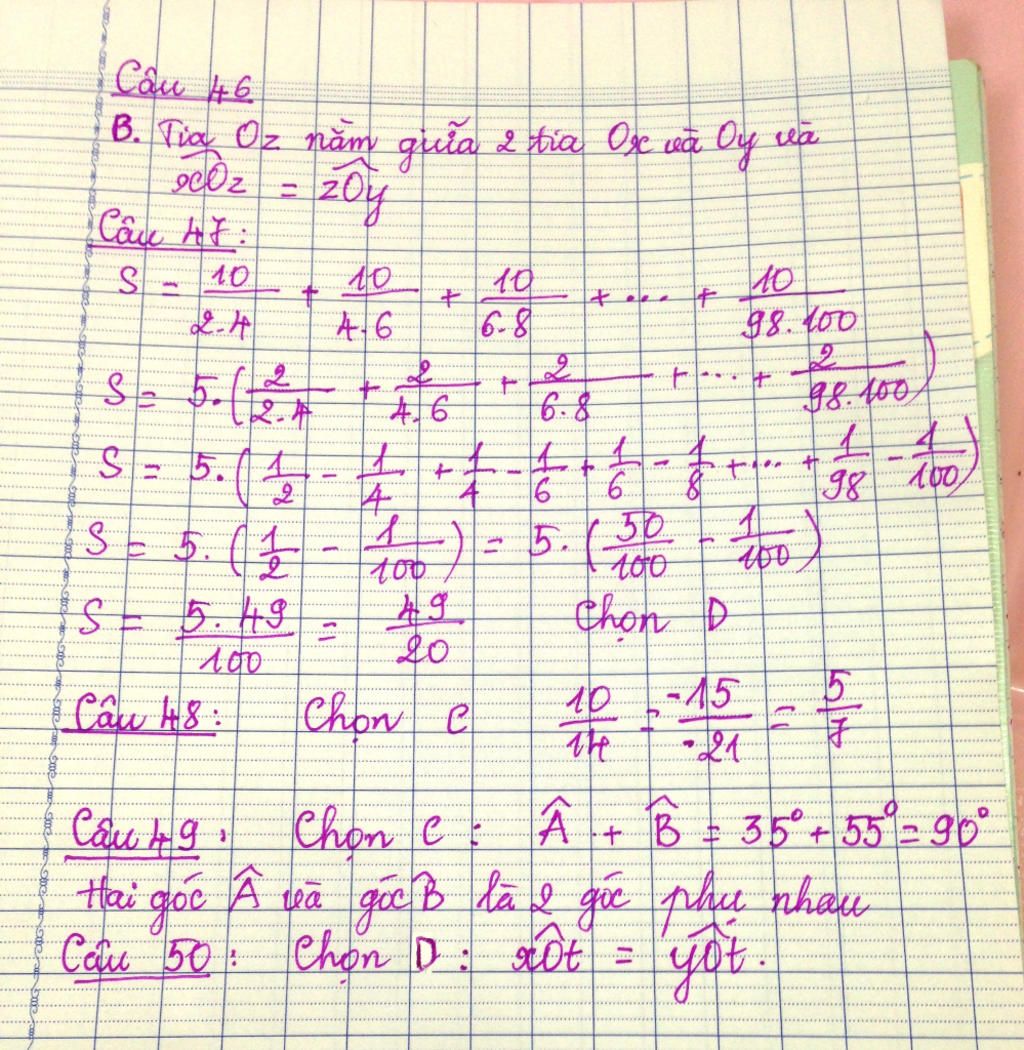 Câu 46
B. Tia Oz nằm giữa 2 tia Ox và Oy và
xÔz = zÔy
Câu 47:
S = 10/2.4 + 10/4.6 + 10/6.8 + ... + 10/98.100
S = 5.(2/2.4 + 2/4.6 + 2/6.8 + ... + 2/98.100)
S = 5.(1/2 - 1/4 + 1/4 - 1/6 + 1/6 - 1/8 + ... + 1/98 - 1/100)
S = 5.(1/2 - 1/100) = 5.(50/100 - 1/100)
S = 5.49/100 = 49/20 Chọn D
Câu 48: Chọn C 10/14 = -15/-21 = 5/7
Câu 49: Chọn C: Â + B̂ = 35° + 55° = 90°
Hai góc Â và góc B̂ là 2 góc phụ nhau
Câu 50: Chọn D: xÔt = yÔt.